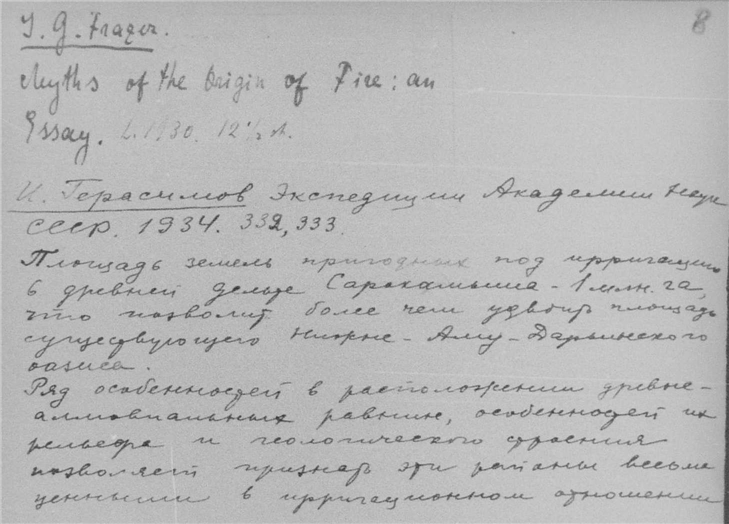 8
J. G. Frazer.
Myths of the Origin of Fire: an
Essay. L. 1930. 12 1/2 sh.
И. Герасимов Экспедиции Академии Наук
СССР. 1934. 332, 333.
Площадь земель пригодных под ирригацию
в древней дельте Сарыкамыша - 1 млн. га,
что позволит более чем удвоить площадь
существующего Нижне-Аму-Дарьинского
оазиса.
Ряд особенностей в расположении древне-
аллювиальных равнин, особенностей их
рельефа и геологического строения
позволяет признать эти районы весьма
ценными в ирригационном отношении